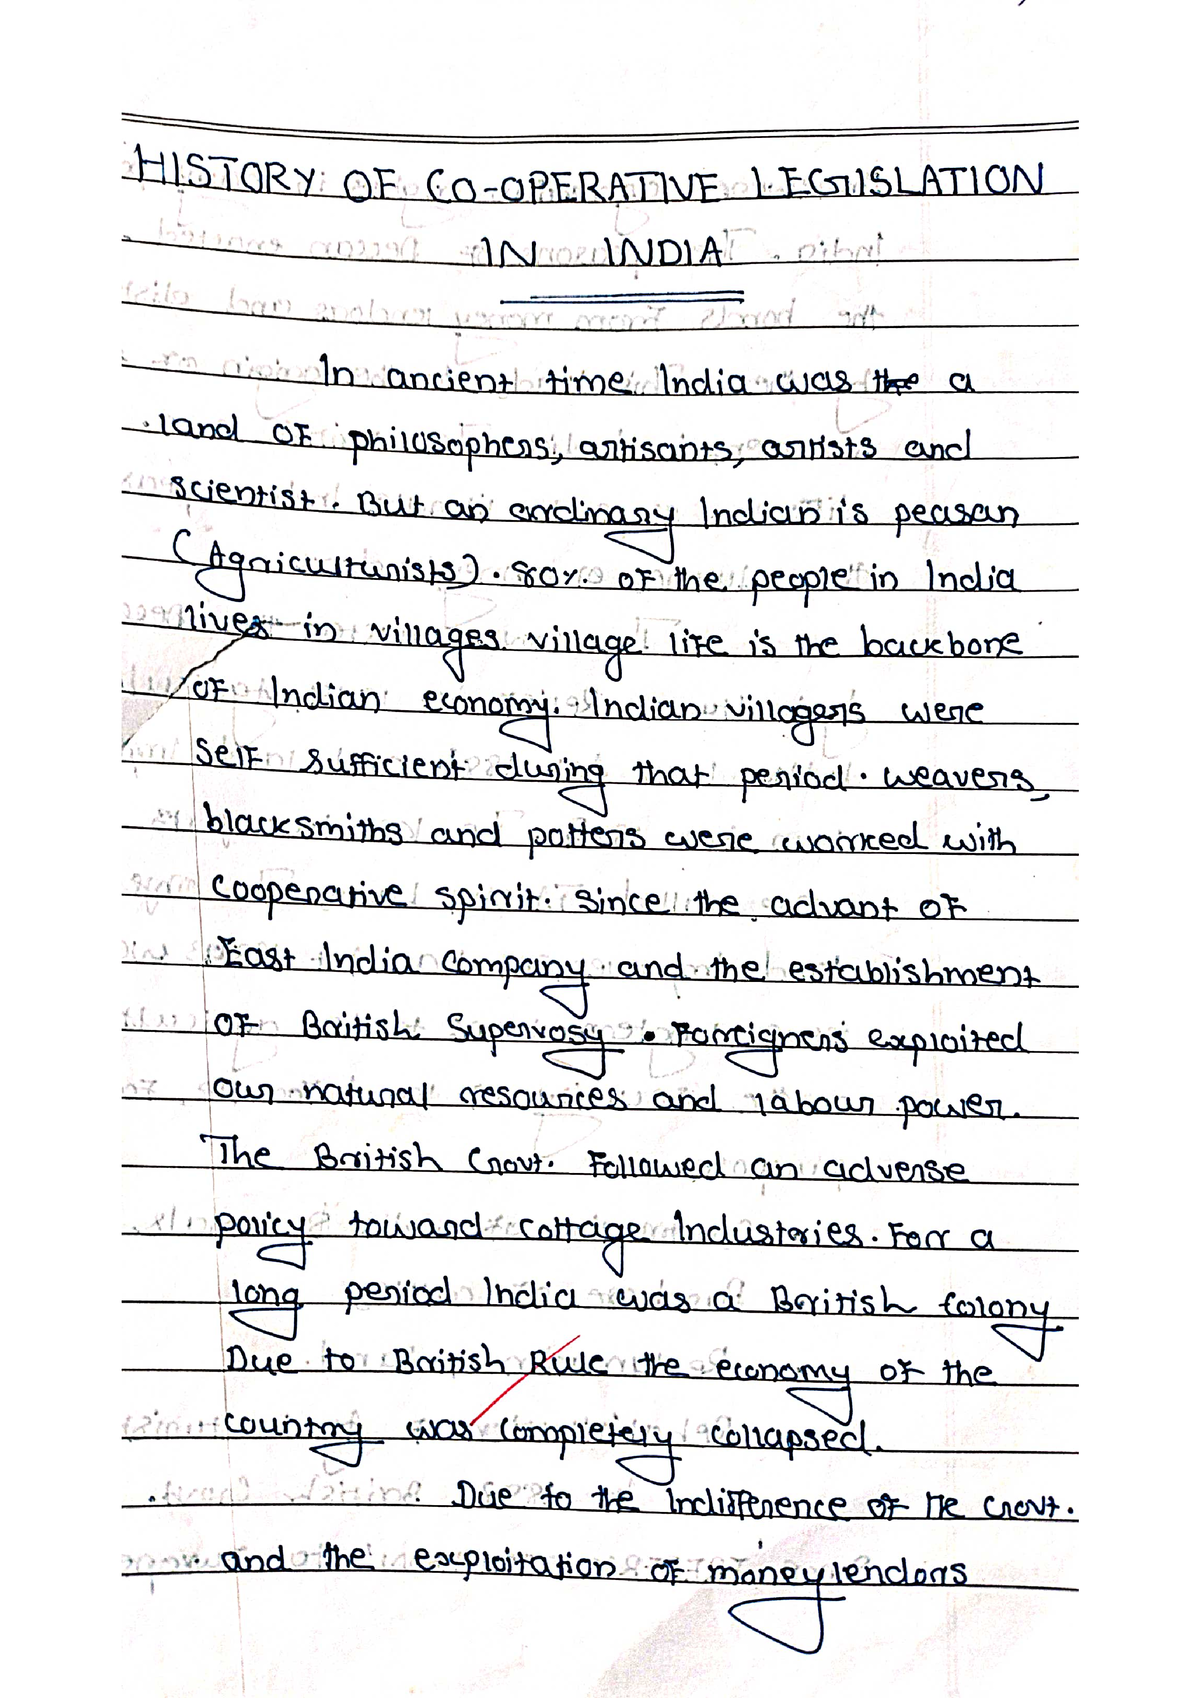 HISTORY OF CO-OPERATIVE LEGISLATION
IN INDIA
In ancient time India was the a
land of philosophers, artisants, artists and
scientist. But an ordinary Indian is peasan
(Agriculturists). 80%. of the people in India
lives in villages village life is the backbone
of Indian economy. Indian villagers were
self sufficient during that period. weavers,
blacksmiths and potters were worked with
cooperative spirit. Since the advant of
East India Company and the establishment
of British Supervosy. Foreigners exploited
our natural resources and labour power.
The British Govt. Followed an adverse
policy toward cottage Industries. For a
long period India was a British Colony
Due to British Rule the economy of the
country was completely collapsed.
Due to the Indifference of the Govt.
and the exploitation of moneylendors